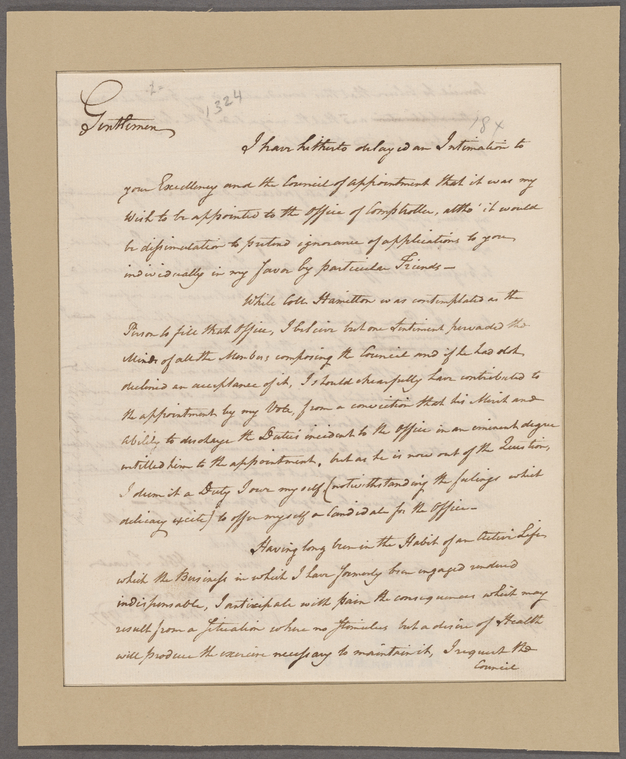 1324
184
Gentlemen
I have hitherto delayed an Intimation to
your Excellency and the Council of appointment that it was my
Wish to be appointed to the Office of Comptroller, altho' it would
be dissimulation to pretend ignorance of applications to you
individually in my favor by particular Friends—
While Coll. Hamilton was contemplated as the
Person to fill that Office, I believe but one Sentiment pervaded the
Minds of all the Members composing the Council and if he had not
declined an acceptance of it, I should chearfully have contributed to
the appointment by my Vote, from a conviction that his Merit and
Ability to discharge the Duties incident to the Office in an eminent degree
intitled him to the appointment, but as he is now out of the Question,
I deem it a Duty I owe my self (notwithstanding the feelings which
delicacy excite) to offer myself a Candidate for the Office—
Having long been in the Habit of an Active Life
which the Business in which I have formerly been engaged rendered
indispensable, I anticipate with pain the consequences which may
result from a Situation where no Stimulus but a desire of Health
will produce the exercise necessary to maintain it, I request the
Council